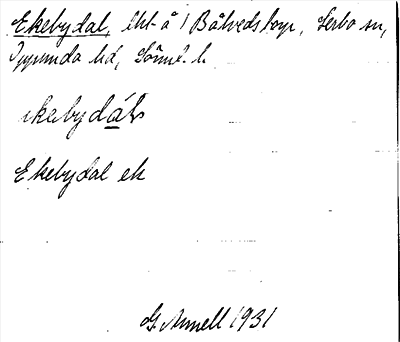 Ekebydal, lht å 1 Bålvedsboye, Lerbo sn,
Oppunda hd, Sörml. l.
ekebydáls
Ekebydal ek
G. Annell 1931